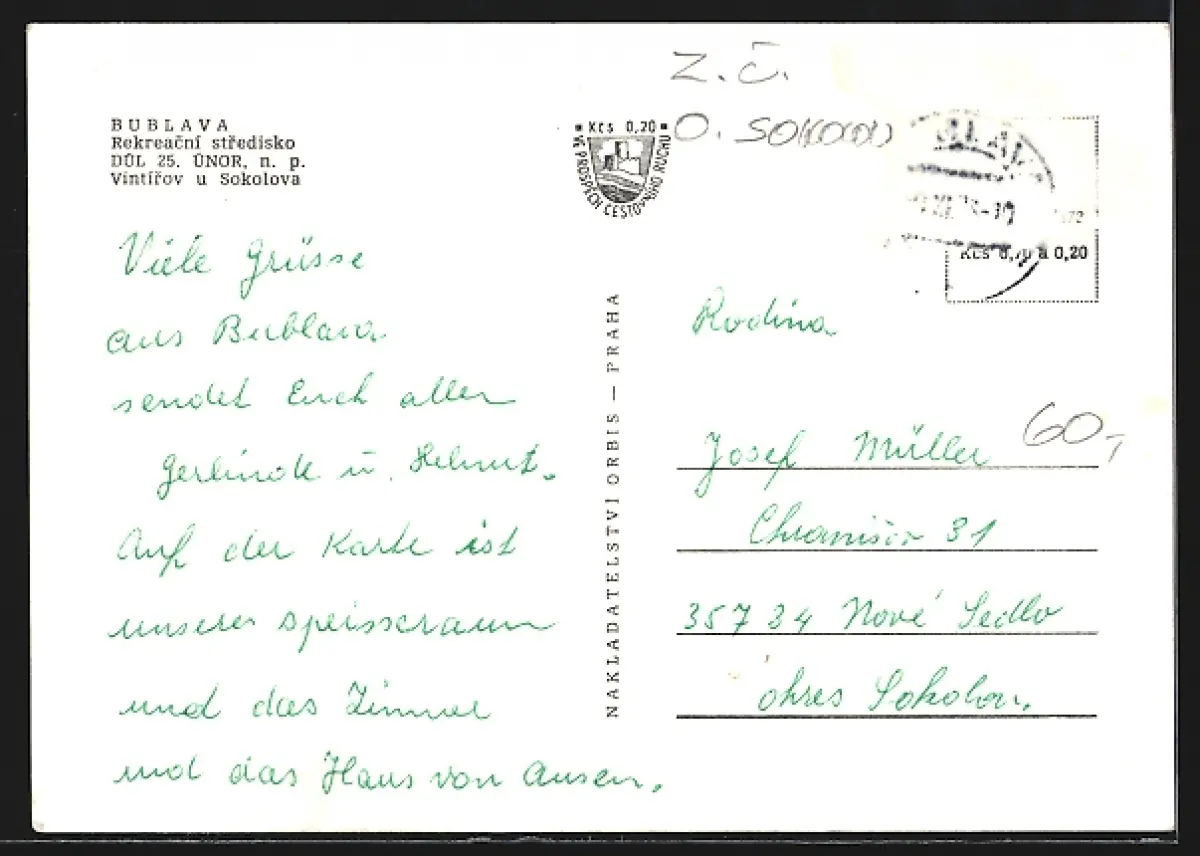 Z. Č.
O. SOKOLOV
BUBLAVA
Rekreační středisko
DŮL 25. ÚNOR, n. p.
Vintířov u Sokolova
Kčs 0,20
VE PROSPĚCH CESTOVNÍHO RUCHU
Viele Grüsse
aus Bublava
sendet Euch allen
Gerlinde u. Helmut.
Auf der Karte ist
unserer speisseraum
und das Zimmer
und das Haus von Ausen.
NAKLADATELSTVÍ ORBIS — PRAHA
Kčs 0,70 a 0,20
Rodina
Josef Müller
60,-
Chranišov 31
35734 Nové Sedlo
okres Sokolov.